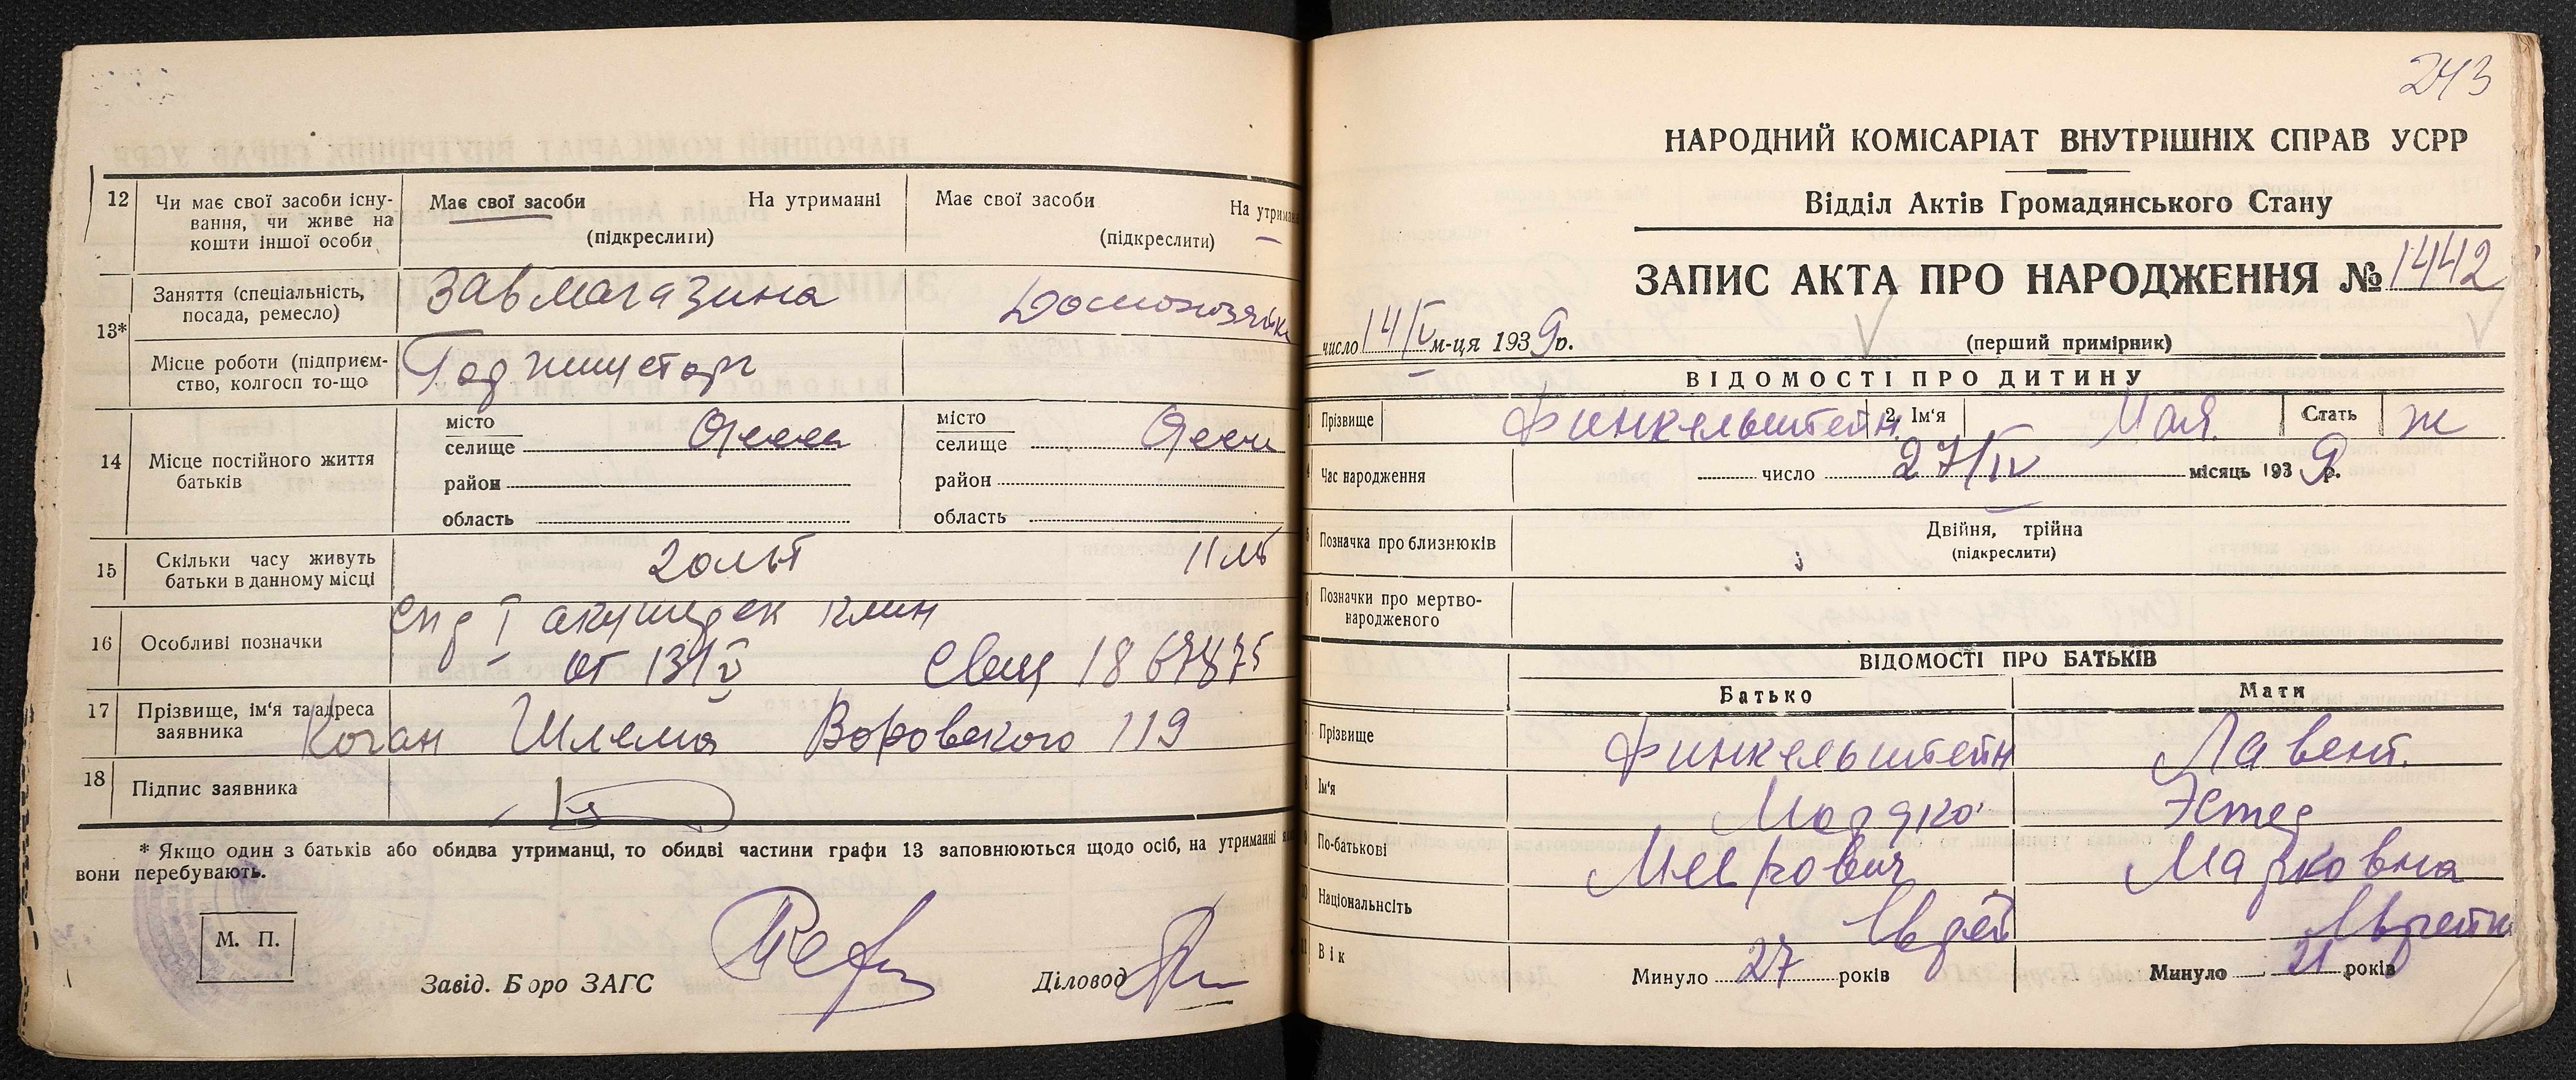 12 Чи має свої засоби існу-
вання, чи живе на
кошти іншої особи
Має свої засоби На утриманні
(підкреслити)
Має свої засоби На утриман
(підкреслити)
13*
Заняття (спеціальність,
посада, ремесло)
Завмагазина
Домохозяйк
Місце роботи (підприєм-
ство, колгосп то-що
14 Місце постійного життя
батьків
місто
селище Одесса
район
область
місто
селище Одесса
район
область
15 Скільки часу живуть
батьки в данному місці
20 лет
11 лет
16 Особливі позначки
клин
от 13/V
17 Прізвище, ім'я та адреса
заявника
Коган Шлема Воровского 119
18 Підпис заявника
* Якщо один з батьків або обидва утриманці, то обидві частини графи 13 заповнюються щодо осіб, на утриманні
вони перебувають.
М. П.
Завід. Бюро ЗАГС
Діловод
243
НАРОДНИЙ КОМІСАРІАТ ВНУТРІШНІХ СПРАВ УСРР
Відділ Актів Громадянського Стану
ЗАПИС АКТА ПРО НАРОДЖЕННЯ № 1442
число 14/V м-ця 1939р.
(перший примірник)
ВІДОМОСТІ ПРО ДИТИНУ
Прізвище Финкельштейн 2. Ім'я Мая Стать ж
Час народження число 27/IV місяць 1939р.
Позначка про близнюків
Двійня, трійна
(підкреслити)
Позначки про мертво-
народженого
ВІДОМОСТІ ПРО БАТЬКІВ
Батько Мати
Прізвище Финкельштейн Лавент.
Ім'я Мордко Эстер
По-батькові Меерович Марковна
Національнсіть Еврей Еврейка
Вік Минуло 27 років Минуло 21 років